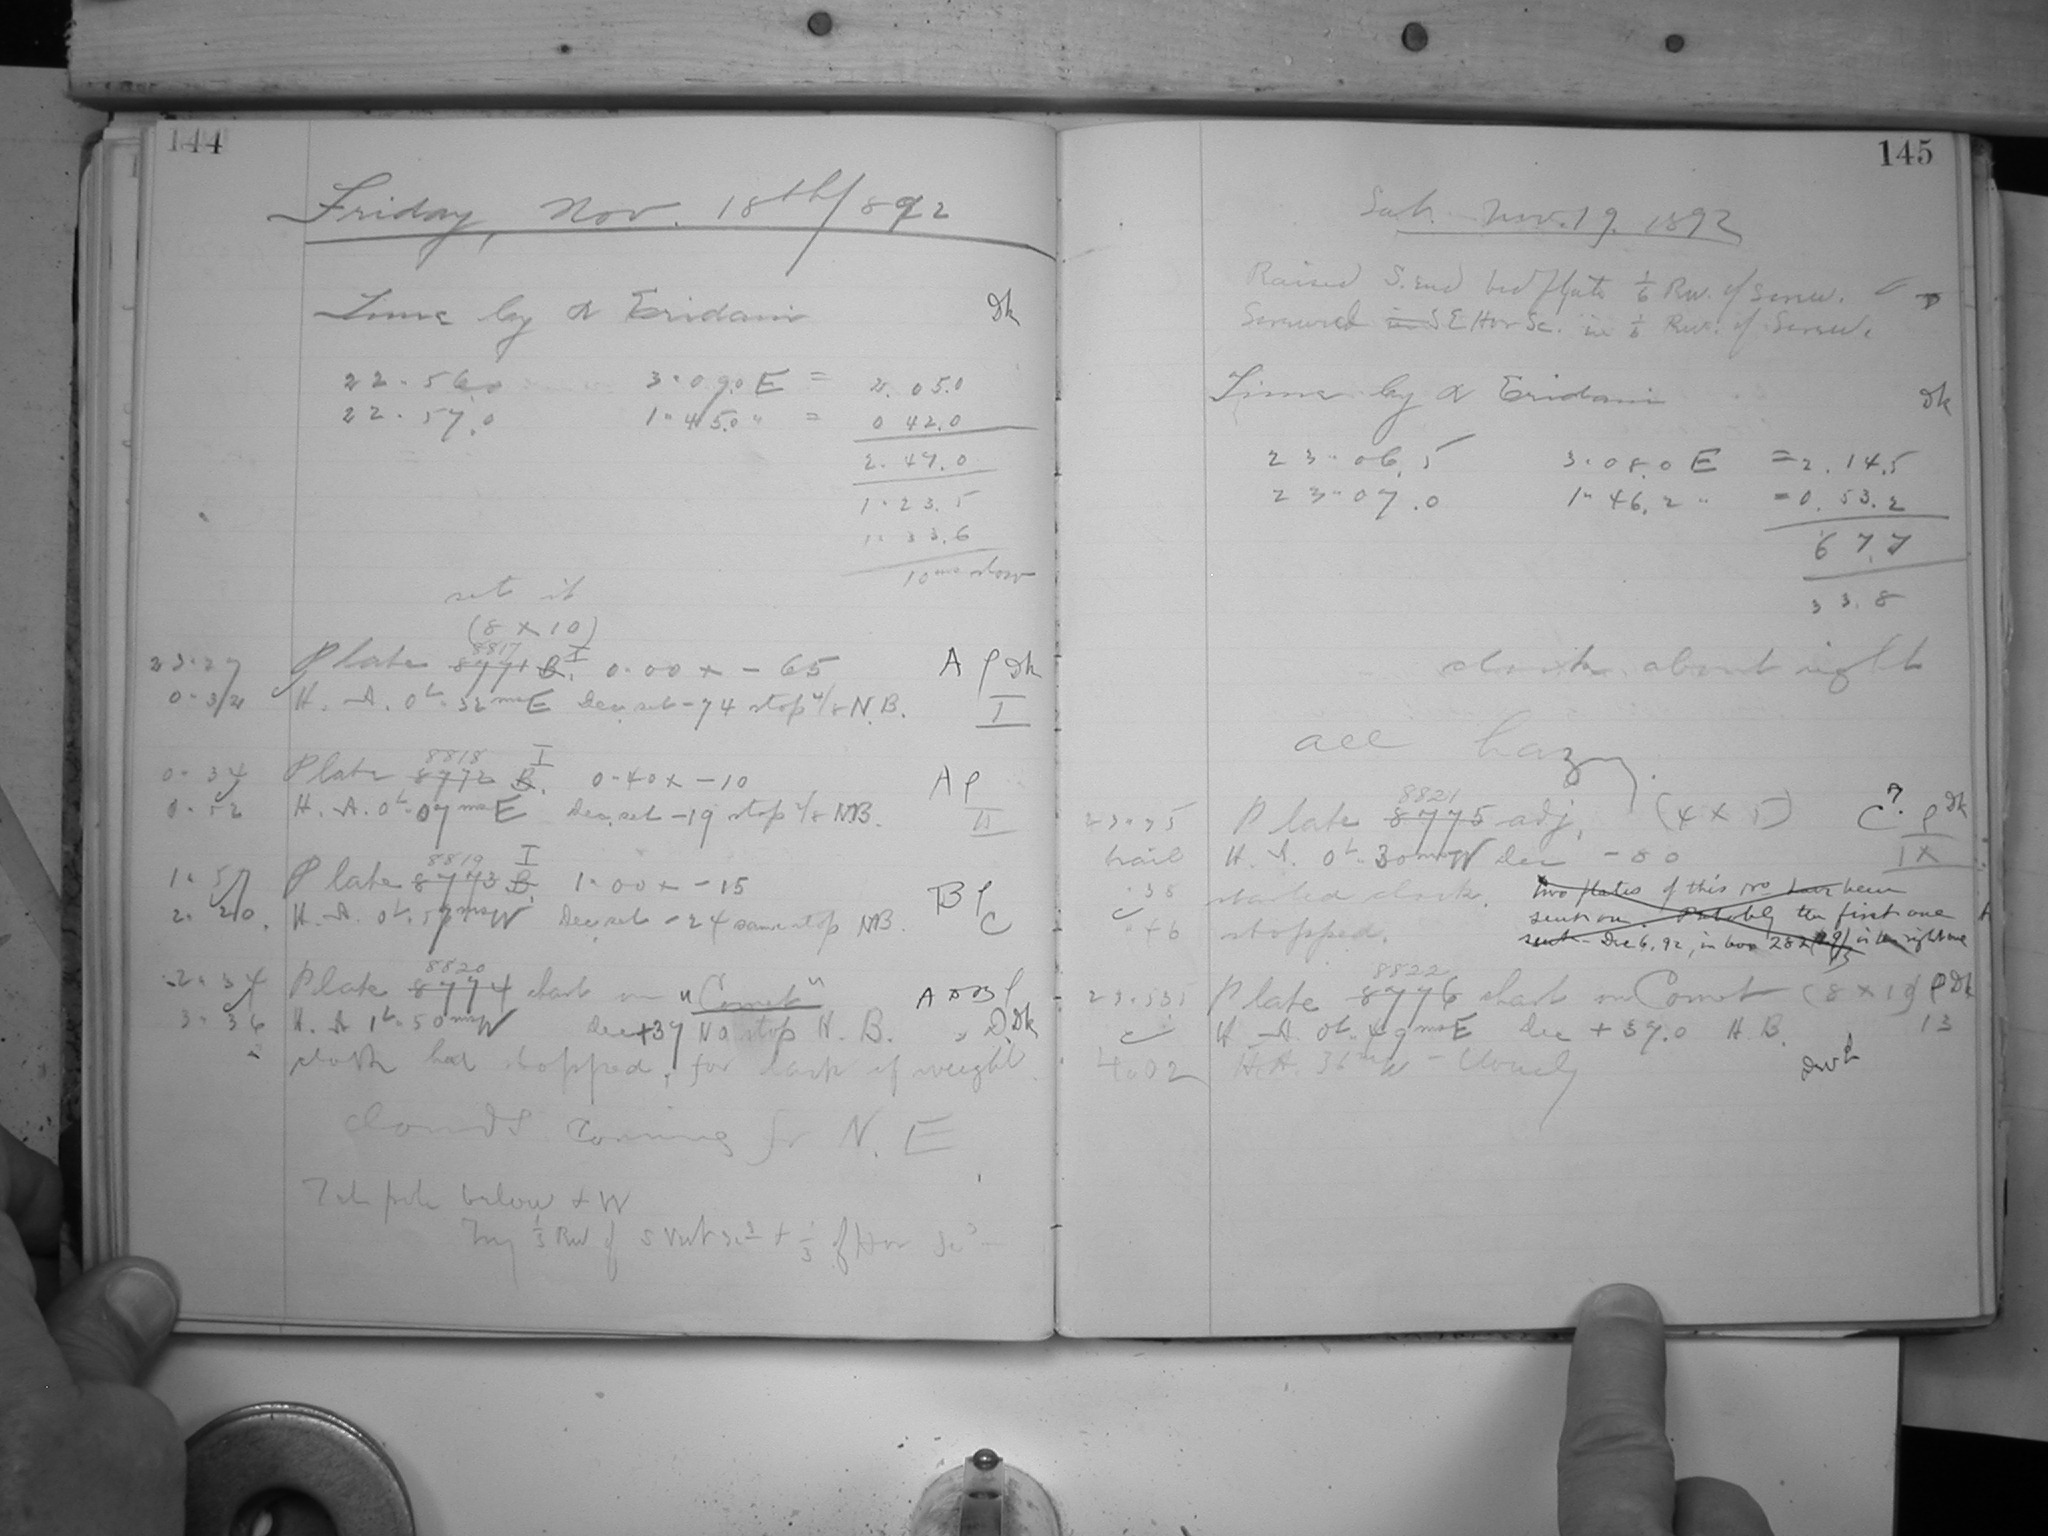 144
Friday, Nov. 18th 1892
Time by α Eridani Dk
22.56.0 3.09.0 E = 2.05.0
22.57.0 1.45.0 " = 0 42.0
2.47.0
1.23.5
1.33.6
10 ms slow
set it
(8 x 10)
8817 I
23.27 Plate 8771 B. 0.00 x - 65 A P Dk
H. A. 0h.32ms E Dec. set - 74 stop 4/8 N.B. I
8818 I
0.34 Plate 8772 B. 0.40 x - 10 A P
0.52 H. A. 0h.07ms E Dec. set - 19 stop 4/8 NB. II
8819 I
1.57 Plate 8773 B 1.00 x - 15 B P
2.20. H. A. 0h.57ms W Dec set - 24 same stop NB. C
8820
2.34 Plate 8774 chart on "Comet" A
3.36 H. A 1h.50ms W Dec +37 No stop H. B. Dk
clock had stopped, for lack of weight
clouds coming fr N. E
Tel. pole below + W
Try 1/3 Rev of S Vert Sc + 1/3 of Hor Sc
145
Sat. Nov. 19. 1892
Raised S. end bed plate 1/6 Rev. of Screw.
Screwed in SE Hor Sc. in 1/6 Rev. of Screw.
Time by α Eridani Dk
23.06.5 3.08.0 E = 2.14.5
23.07.0 1.46.2 " = 0.53.2
6 7.7
3 3.8
clock about right
all hazy.
8821
23.35 Plate 8775 adj, (4 x 5) C A. P Dk
trail H. A. 0h.30ms W Dec - 80 IX
.38 started clock. Two plates of this No have been
sent on. Probably the first one
.46 stopped. sent - Dec 6, 92, in box 282 is the right one
8822
23.535 Plate 8776 chart on Comet (8 x 10) P Dk
H. A. 0h.49ms E Dec + 37.0 H B. 13
4.02 H.A. 36ms W - Cloudy